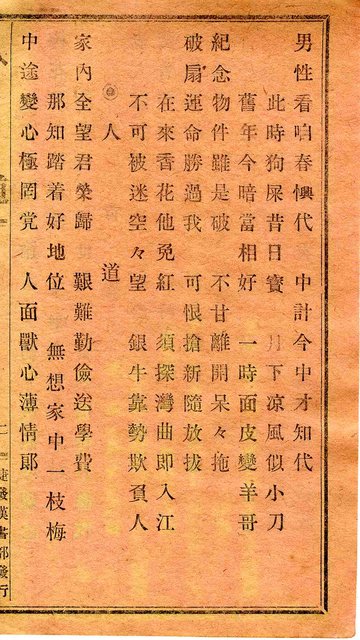 男性看咱春懊代 中計今中才知代
此時狗屎昔日寶 月下凉風似小刀
舊年今暗當相好 一時面皮變羊哥
紀念物件雖是破 不甘離開呆々拖
破扇運命勝過我 可恨搶新隨放拔
在來香花他免紅 須探灣曲即入江
不可被迷空々望 銀牛靠勢欺負人
人道
家內全望君榮歸 艱難勤儉送學費
那知踏着好地位 無想家中一枝梅
中途變心極罔党 人面獸心薄情郎
二 捷發漢書部發行